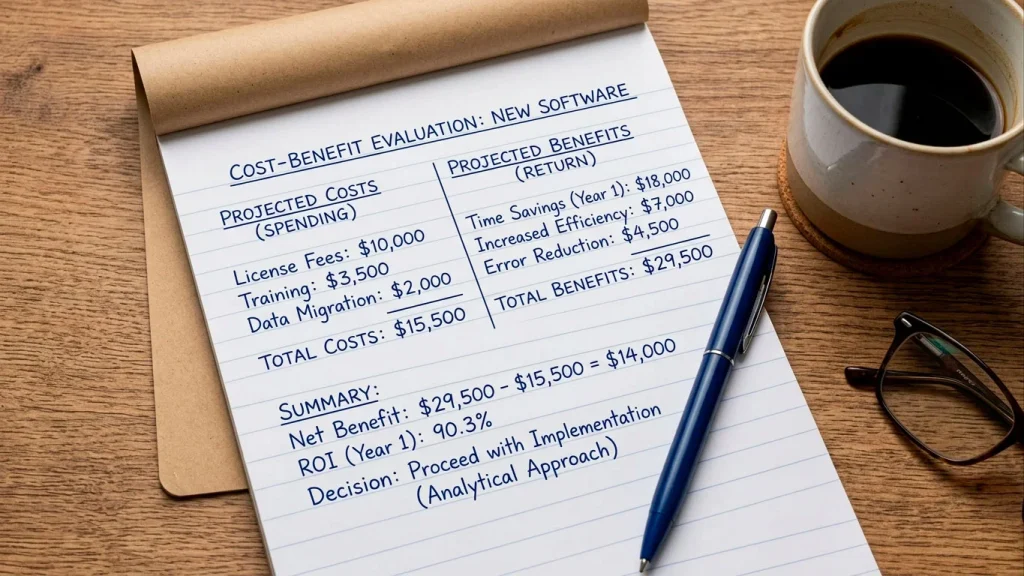 COST-BENEFIT EVALUATION: NEW SOFTWARE
PROJECTED COSTS
(SPENDING)
License Fees: $10,000
Training: $3,500
Data Migration: $2,000
TOTAL COSTS: $15,500
PROJECTED BENEFITS
(RETURN)
Time Savings (Year 1): $18,000
Increased Efficiency: $7,000
Error Reduction: $4,500
TOTAL BENEFITS: $29,500
SUMMARY:
Net Benefit: $29,500 - $15,500 = $14,000
ROI (Year 1): 90.3%
Decision: Proceed with Implementation
(Analytical Approach)